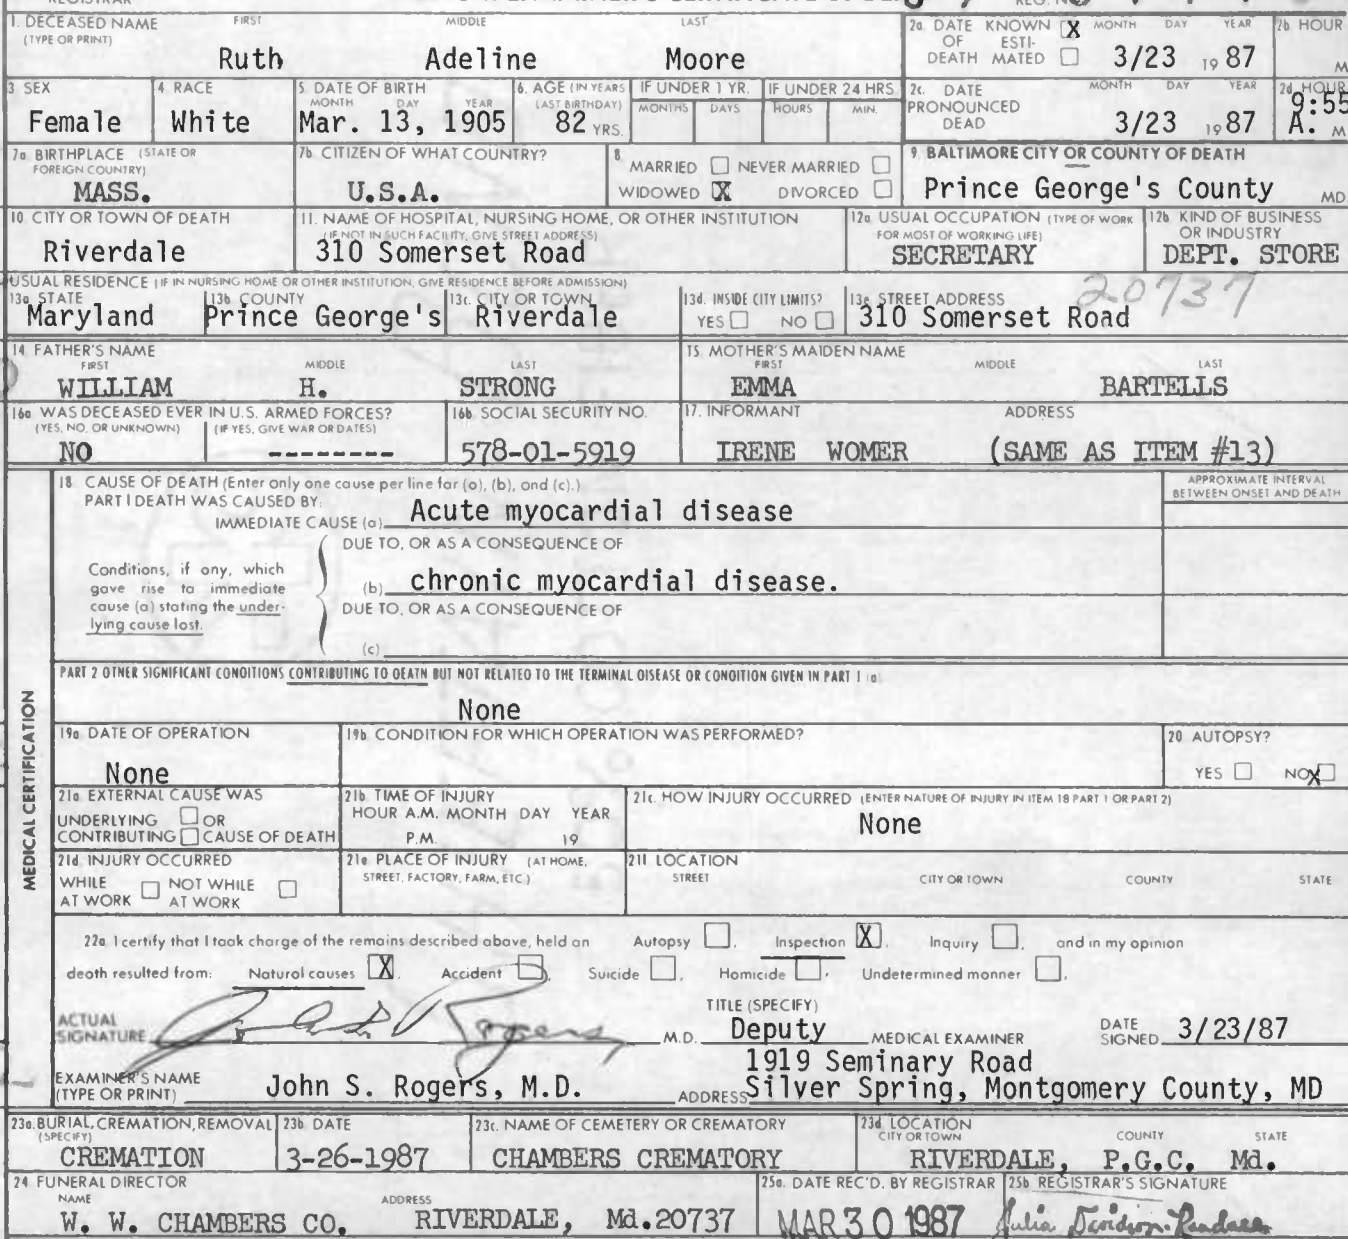 1. DECEASED NAME FIRST MIDDLE LAST
(TYPE OR PRINT)
Ruth Adeline Moore
2a. DATE KNOWN X MONTH DAY YEAR
OF ESTI-
DEATH MATED 3/23 1987
2b HOUR
M
3 SEX
Female
4. RACE
White
5. DATE OF BIRTH
MONTH DAY YEAR
Mar. 13, 1905
6. AGE (IN YEARS
LAST BIRTHDAY)
82 YRS.
IF UNDER 1 YR.
MONTHS DAYS
IF UNDER 24 HRS.
HOURS MIN.
2c. DATE MONTH DAY YEAR
PRONOUNCED
DEAD 3/23 1987
2d HOUR
9:55
A. M
7a BIRTHPLACE (STATE OR
FOREIGN COUNTRY)
MASS.
7b CITIZEN OF WHAT COUNTRY?
U.S.A.
8
MARRIED NEVER MARRIED
WIDOWED X DIVORCED
9. BALTIMORE CITY OR COUNTY OF DEATH
Prince George's County MD.
10. CITY OR TOWN OF DEATH
Riverdale
11. NAME OF HOSPITAL, NURSING HOME, OR OTHER INSTITUTION
(IF NOT IN SUCH FACILITY, GIVE STREET ADDRESS)
310 Somerset Road
12a USUAL OCCUPATION (TYPE OF WORK
FOR MOST OF WORKING LIFE)
SECRETARY
12b KIND OF BUSINESS
OR INDUSTRY
DEPT. STORE
USUAL RESIDENCE (IF IN NURSING HOME OR OTHER INSTITUTION, GIVE RESIDENCE BEFORE ADMISSION)
13a STATE
Maryland
13b COUNTY
Prince George's
13c. CITY OR TOWN
Riverdale
13d. INSIDE CITY LIMITS?
YES NO
13e STREET ADDRESS
310 Somerset Road
20737
14 FATHER'S NAME
FIRST MIDDLE LAST
WILLIAM H. STRONG
15. MOTHER'S MAIDEN NAME
FIRST MIDDLE LAST
EMMA BARTELLS
16a WAS DECEASED EVER IN U.S. ARMED FORCES?
(YES, NO, OR UNKNOWN) (IF YES, GIVE WAR OR DATES)
NO --------
16b SOCIAL SECURITY NO.
578-01-5919
17. INFORMANT ADDRESS
IRENE WOMER (SAME AS ITEM #13)
MEDICAL CERTIFICATION
18 CAUSE OF DEATH (Enter only one cause per line for (a), (b), and (c).)
PART I DEATH WAS CAUSED BY:
IMMEDIATE CAUSE (a) Acute myocardial disease
APPROXIMATE INTERVAL
BETWEEN ONSET AND DEATH
DUE TO, OR AS A CONSEQUENCE OF
Conditions, if any, which
gave rise to immediate
cause (a) stating the under-
lying cause lost.
(b) chronic myocardial disease.
DUE TO, OR AS A CONSEQUENCE OF
(c)
PART 2 OTHER SIGNIFICANT CONDITIONS CONTRIBUTING TO DEATH BUT NOT RELATED TO THE TERMINAL DISEASE OR CONDITION GIVEN IN PART 1 (a)
None
19a DATE OF OPERATION
None
19b CONDITION FOR WHICH OPERATION WAS PERFORMED?
20 AUTOPSY?
YES NO X
21a EXTERNAL CAUSE WAS
UNDERLYING OR
CONTRIBUTING CAUSE OF DEATH
21b. TIME OF INJURY
HOUR A.M. MONTH DAY YEAR
P.M. 19
21c. HOW INJURY OCCURRED (ENTER NATURE OF INJURY IN ITEM 18 PART 1 OR PART 2)
None
21d INJURY OCCURRED
WHILE NOT WHILE
AT WORK AT WORK
21e PLACE OF INJURY (AT HOME,
STREET, FACTORY, FARM, ETC.)
21f LOCATION
STREET CITY OR TOWN COUNTY STATE
22a I certify that I took charge of the remains described above, held an Autopsy , Inspection X , Inquiry , and in my opinion
death resulted from: Natural causes X . Accident , Suicide , Homicide , Undetermined manner .
ACTUAL
SIGNATURE John S Rogers M.D.
TITLE (SPECIFY)
Deputy MEDICAL EXAMINER
DATE
SIGNED 3/23/87
EXAMINER'S NAME
(TYPE OR PRINT) John S. Rogers, M.D.
1919 Seminary Road
ADDRESS Silver Spring, Montgomery County, MD
23a. BURIAL, CREMATION, REMOVAL
(SPECIFY)
CREMATION
23b DATE
3-26-1987
23c. NAME OF CEMETERY OR CREMATORY
CHAMBERS CREMATORY
23d LOCATION
CITY OR TOWN COUNTY STATE
RIVERDALE, P.G.C. Md.
24 FUNERAL DIRECTOR
NAME ADDRESS
W. W. CHAMBERS CO. RIVERDALE, Md.20737
25a. DATE REC'D. BY REGISTRAR
MAR 30 1987
25b REGISTRAR'S SIGNATURE
Julia Davidson-Randall